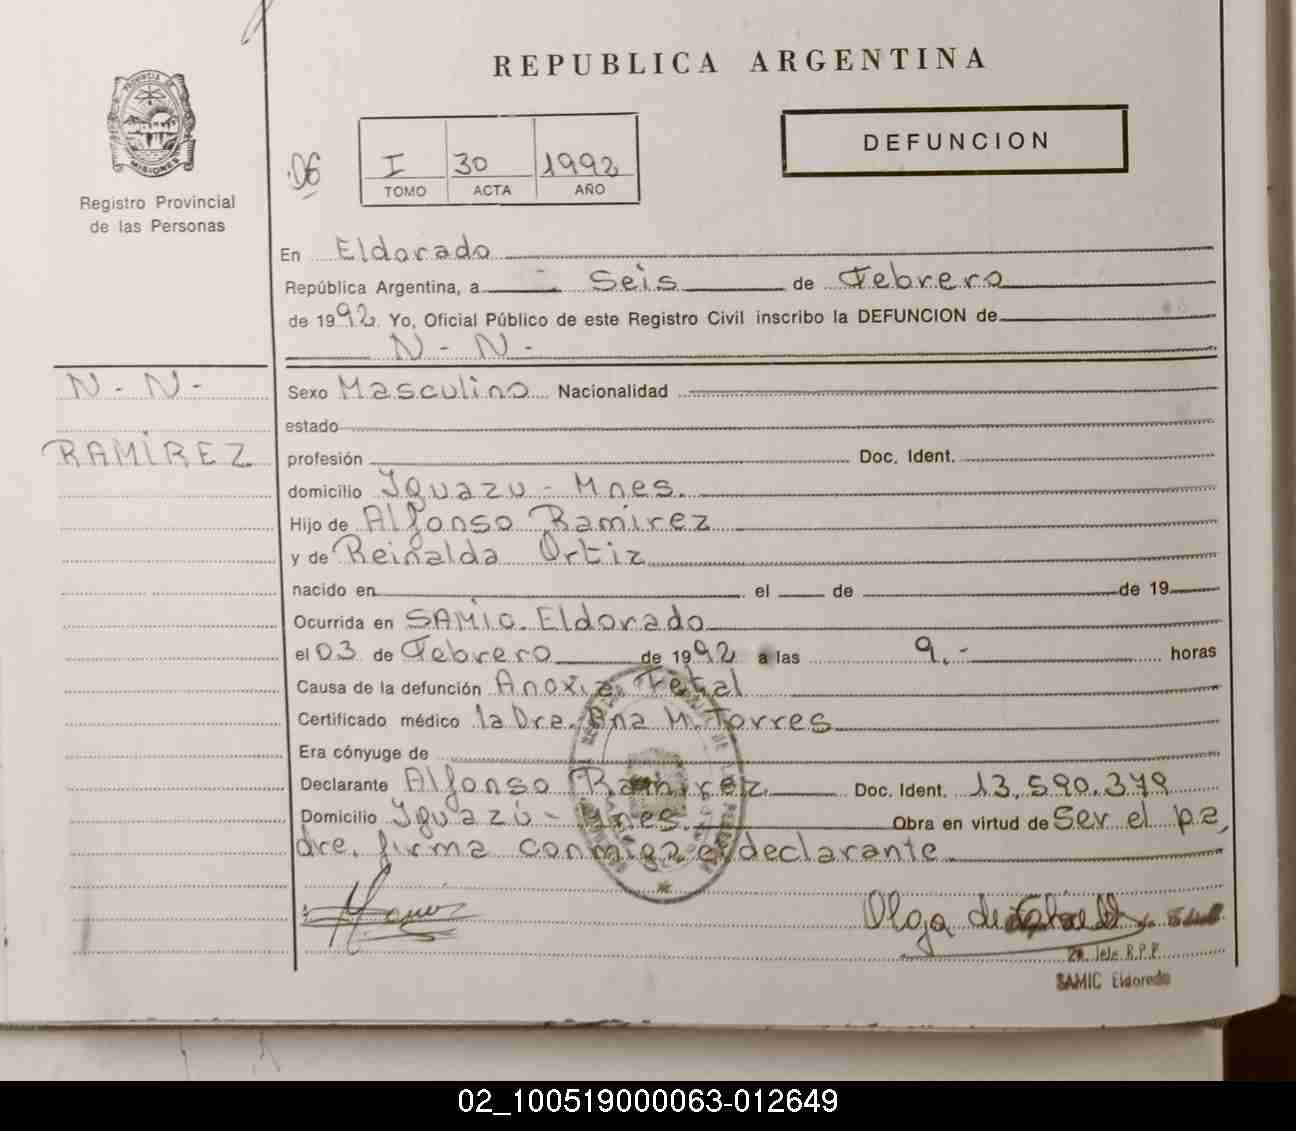 REPUBLICA ARGENTINA
PROVINCIA DE
MISIONES
Registro Provincial
de las Personas
06
I 30 1992
TOMO ACTA AÑO
DEFUNCION
En Eldorado
República Argentina, a Seis de Febrero
de 1992. Yo, Oficial Público de este Registro Civil inscribo la DEFUNCION de
N - N -
N - N -
RAMIREZ
Sexo Masculino Nacionalidad
estado
profesión Doc. Ident.
domicilio Iguazu - Mnes.
Hijo de Alfonso Ramirez
y de Reinalda Ortiz
nacido en el de de 19
Ocurrida en SAMIC. Eldorado
el 03 de Febrero de 1992 a las 9.- horas
Causa de la defunción Anoxia Fetal
Certificado médico la Dra. Ana M. Torres
Era cónyuge de
Declarante Alfonso Ramirez Doc. Ident. 13.590.379
Domicilio Iguazú - Mnes. Obra en virtud de Ser el pa,
dre. firma conmigo el declarante
Olga de
R.P.P.
SAMIC Eldorado
02_100519000063-012649